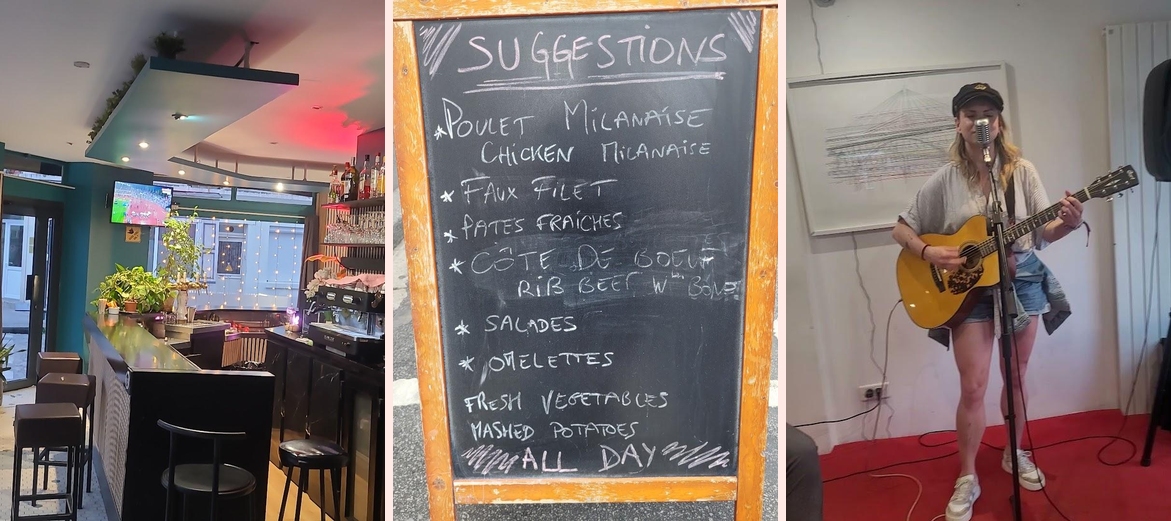 SUGGESTIONS
* POULET MILANAISE
CHICKEN MILANAISE
* FAUX FILET
* PATES FRAÎCHES
* CÔTE DE BOEUF
RIB BEEF WTH BONE
* SALADES
* OMELETTES
FRESH VEGETABLES
MASHED POTATOES
ALL DAY